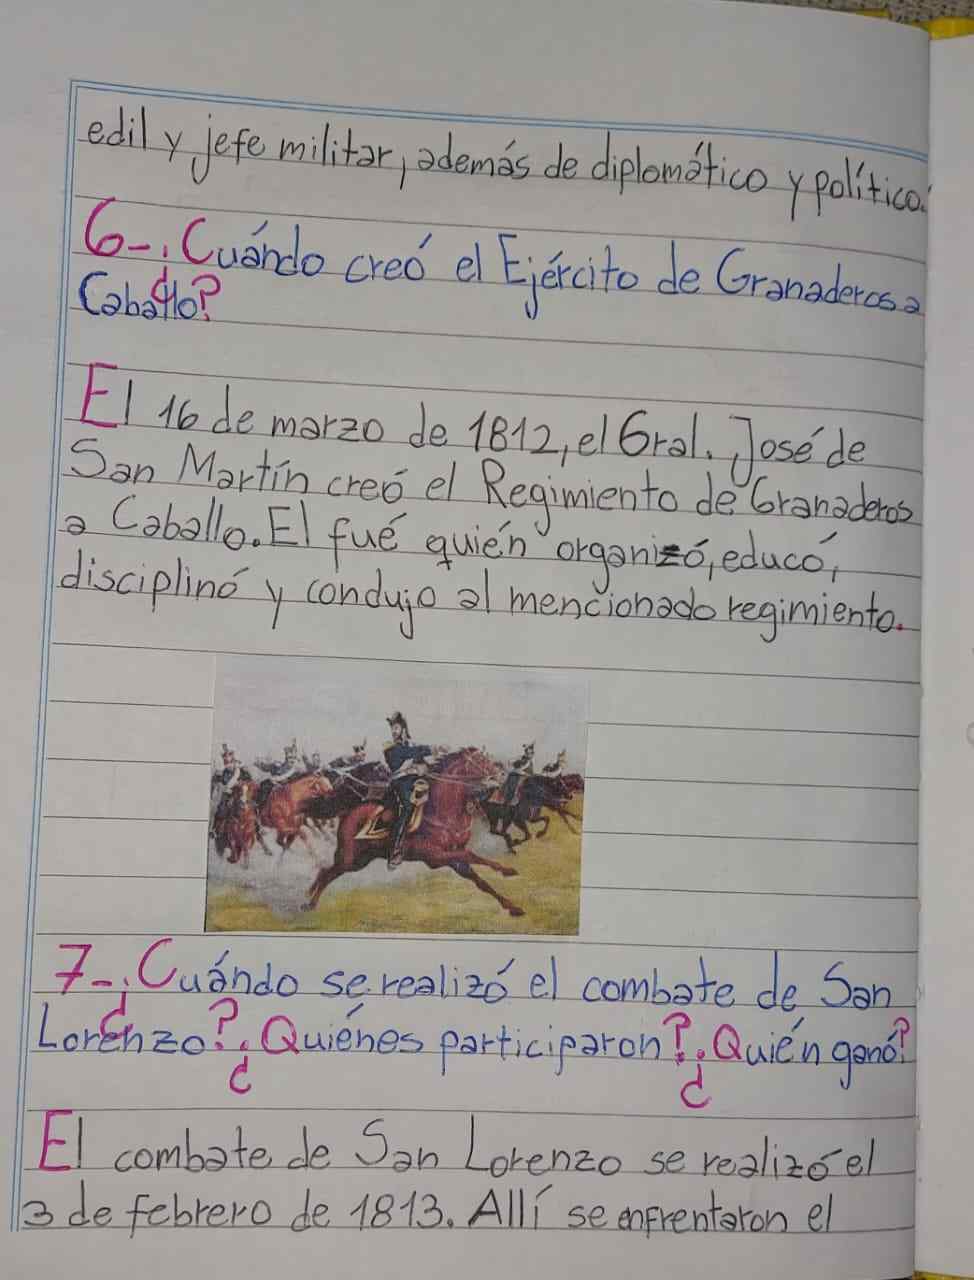 edil y jefe militar, además de diplomático y político.
6-¿Cuándo creó el Ejército de Granaderos a
Caballo?
El 16 de marzo de 1812, el Gral. José de
San Martín creó el Regimiento de Granaderos
a Caballo. El fué quién organizó, educó,
disciplinó y condujo al mencionado regimiento.
7-¿Cuándo se realizó el combate de San
Lorenzo? ¿Quiénes participaron? ¿Quién ganó?
El combate de San Lorenzo se realizó el
3 de febrero de 1813. Allí se enfrentaron el